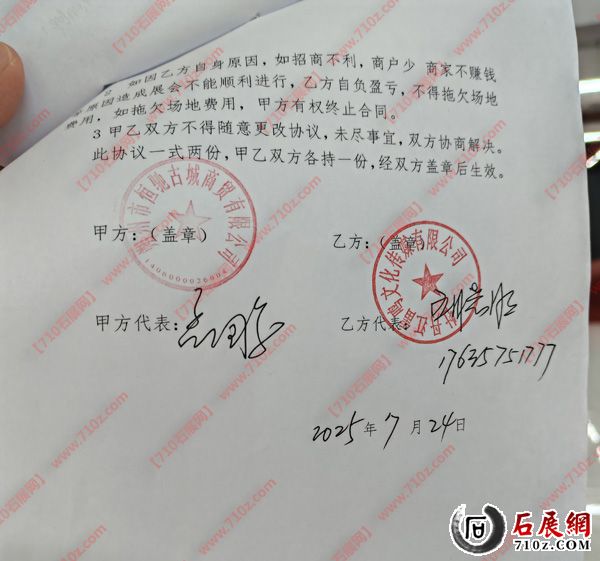 2 如因乙方自身原因，如招商不利，商户少 商家不赚钱
原因造成展会不能顺利进行，乙方自负盈亏，不得拖欠场地
费用，如拖欠场地费用，甲方有权终止合同。
3 甲乙双方不得随意更改协议，未尽事宜，双方协商解决。
此协议一式两份，甲乙双方各持一份，经双方盖章后生效。
市恒驰古城商贸有限公司
甲方：（盖章）
乙方：（盖章）
文化传媒有限公司
甲方代表：
乙方代表：
17635751777
2025年7月24日
【710石展网】
www.710z.com
石展網
710z.com